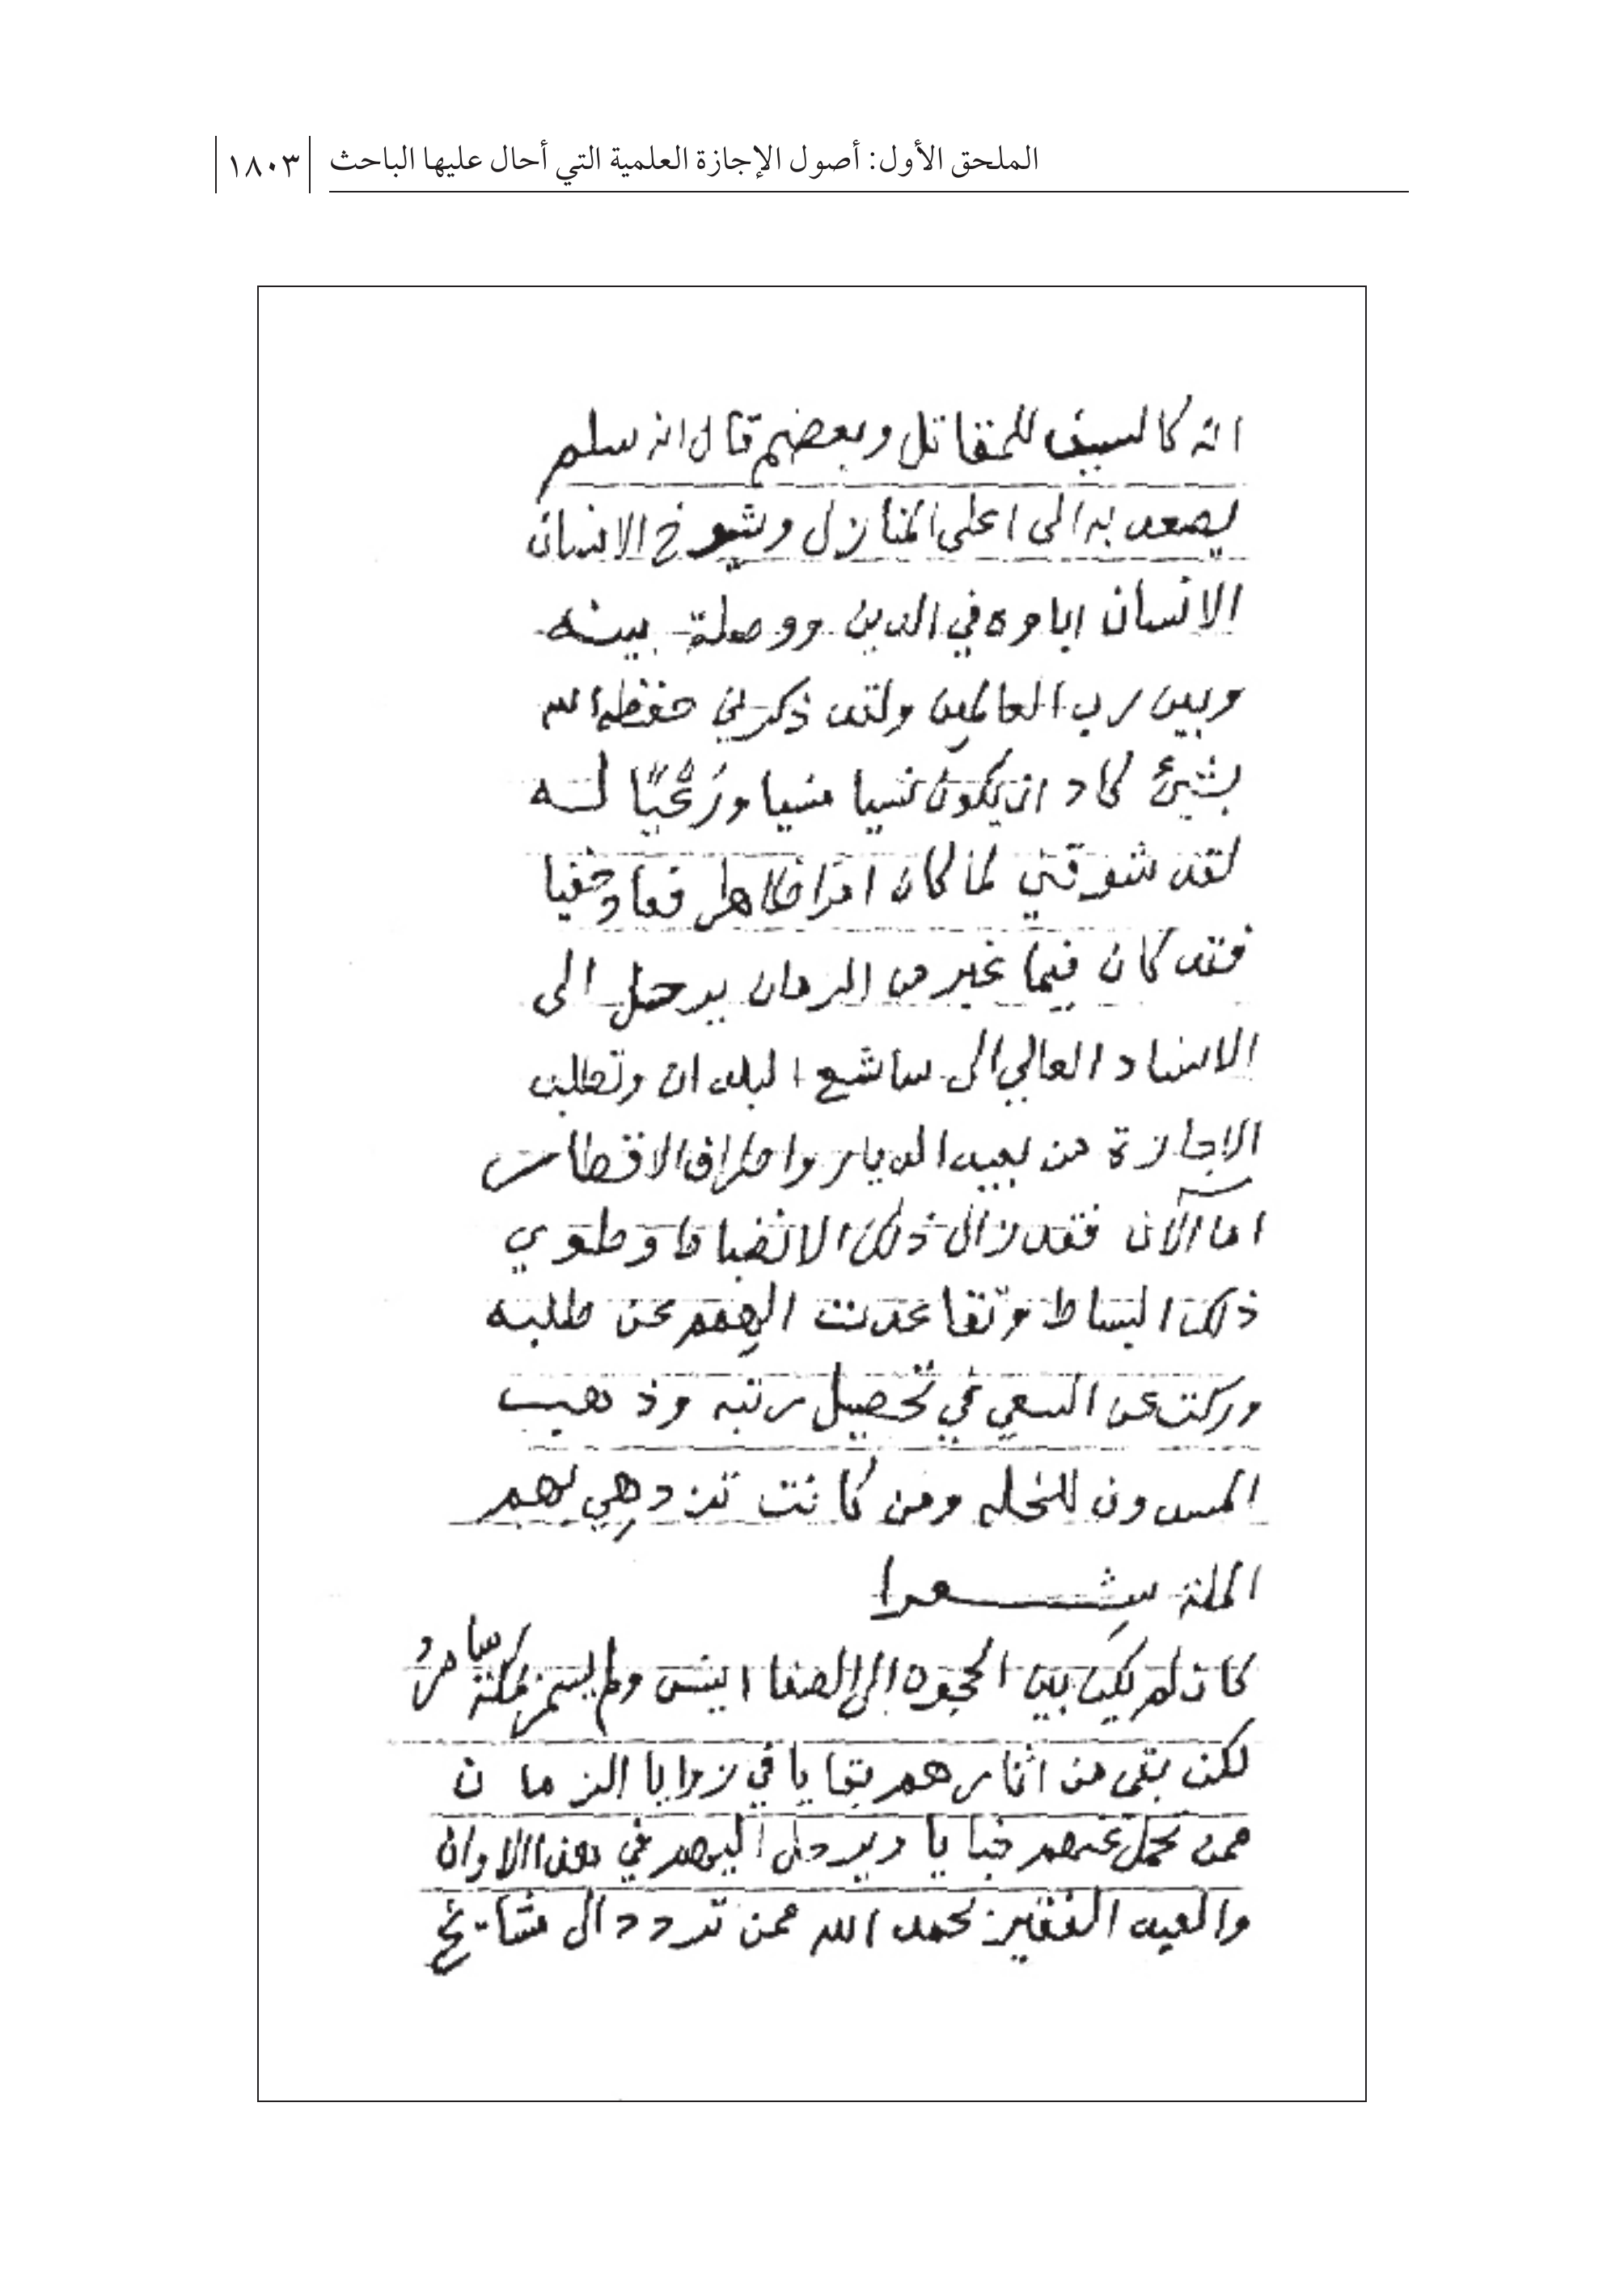 الملحق الأول: أصول الإجازة العلمية التي أحال عليها الباحث ١٨٠٣
انه كالسيف للمقاتل وبعضهم قال انه سلم
يصعد به الى اعلى المنازل وشيوخ الانسان
الانسان اباوه في الدين ووصلة بينه
وبين رب العالمين ولقد ذكرني حفظه الله
بشيئ كاد ان يكون نسيا منسيا له
لقد شوقني لما كان امرا ظاهر فعاد خفيا
فقد كان فيما غبر من الزمان يرحل الى
الاسناد العالي الى شاسع البلدان وتطلب
الاجازة من بعيد الديار واطراف الاقطار
اما الآن فقد زال ذلك الانضباط وطوي
ذلك البساط وتقاعدت الهمم عن طلبه
وركت عن السعي في تحصيل رتبه وذهب
المسدون للخله ومن كانت تزدهي لهم
الملة شعرا
كان لم يكن بين الحجون الى الصفا انيس ولم يسمر بمكة سامرُ
لكن بقى من اثارهم بقايا في زوايا الزمان
ممن تحمل عنهم خبايا ويرحل اليهم في هذا الاوان
والعبد الفقير بحمد الله ممن تردد الى مشايخ